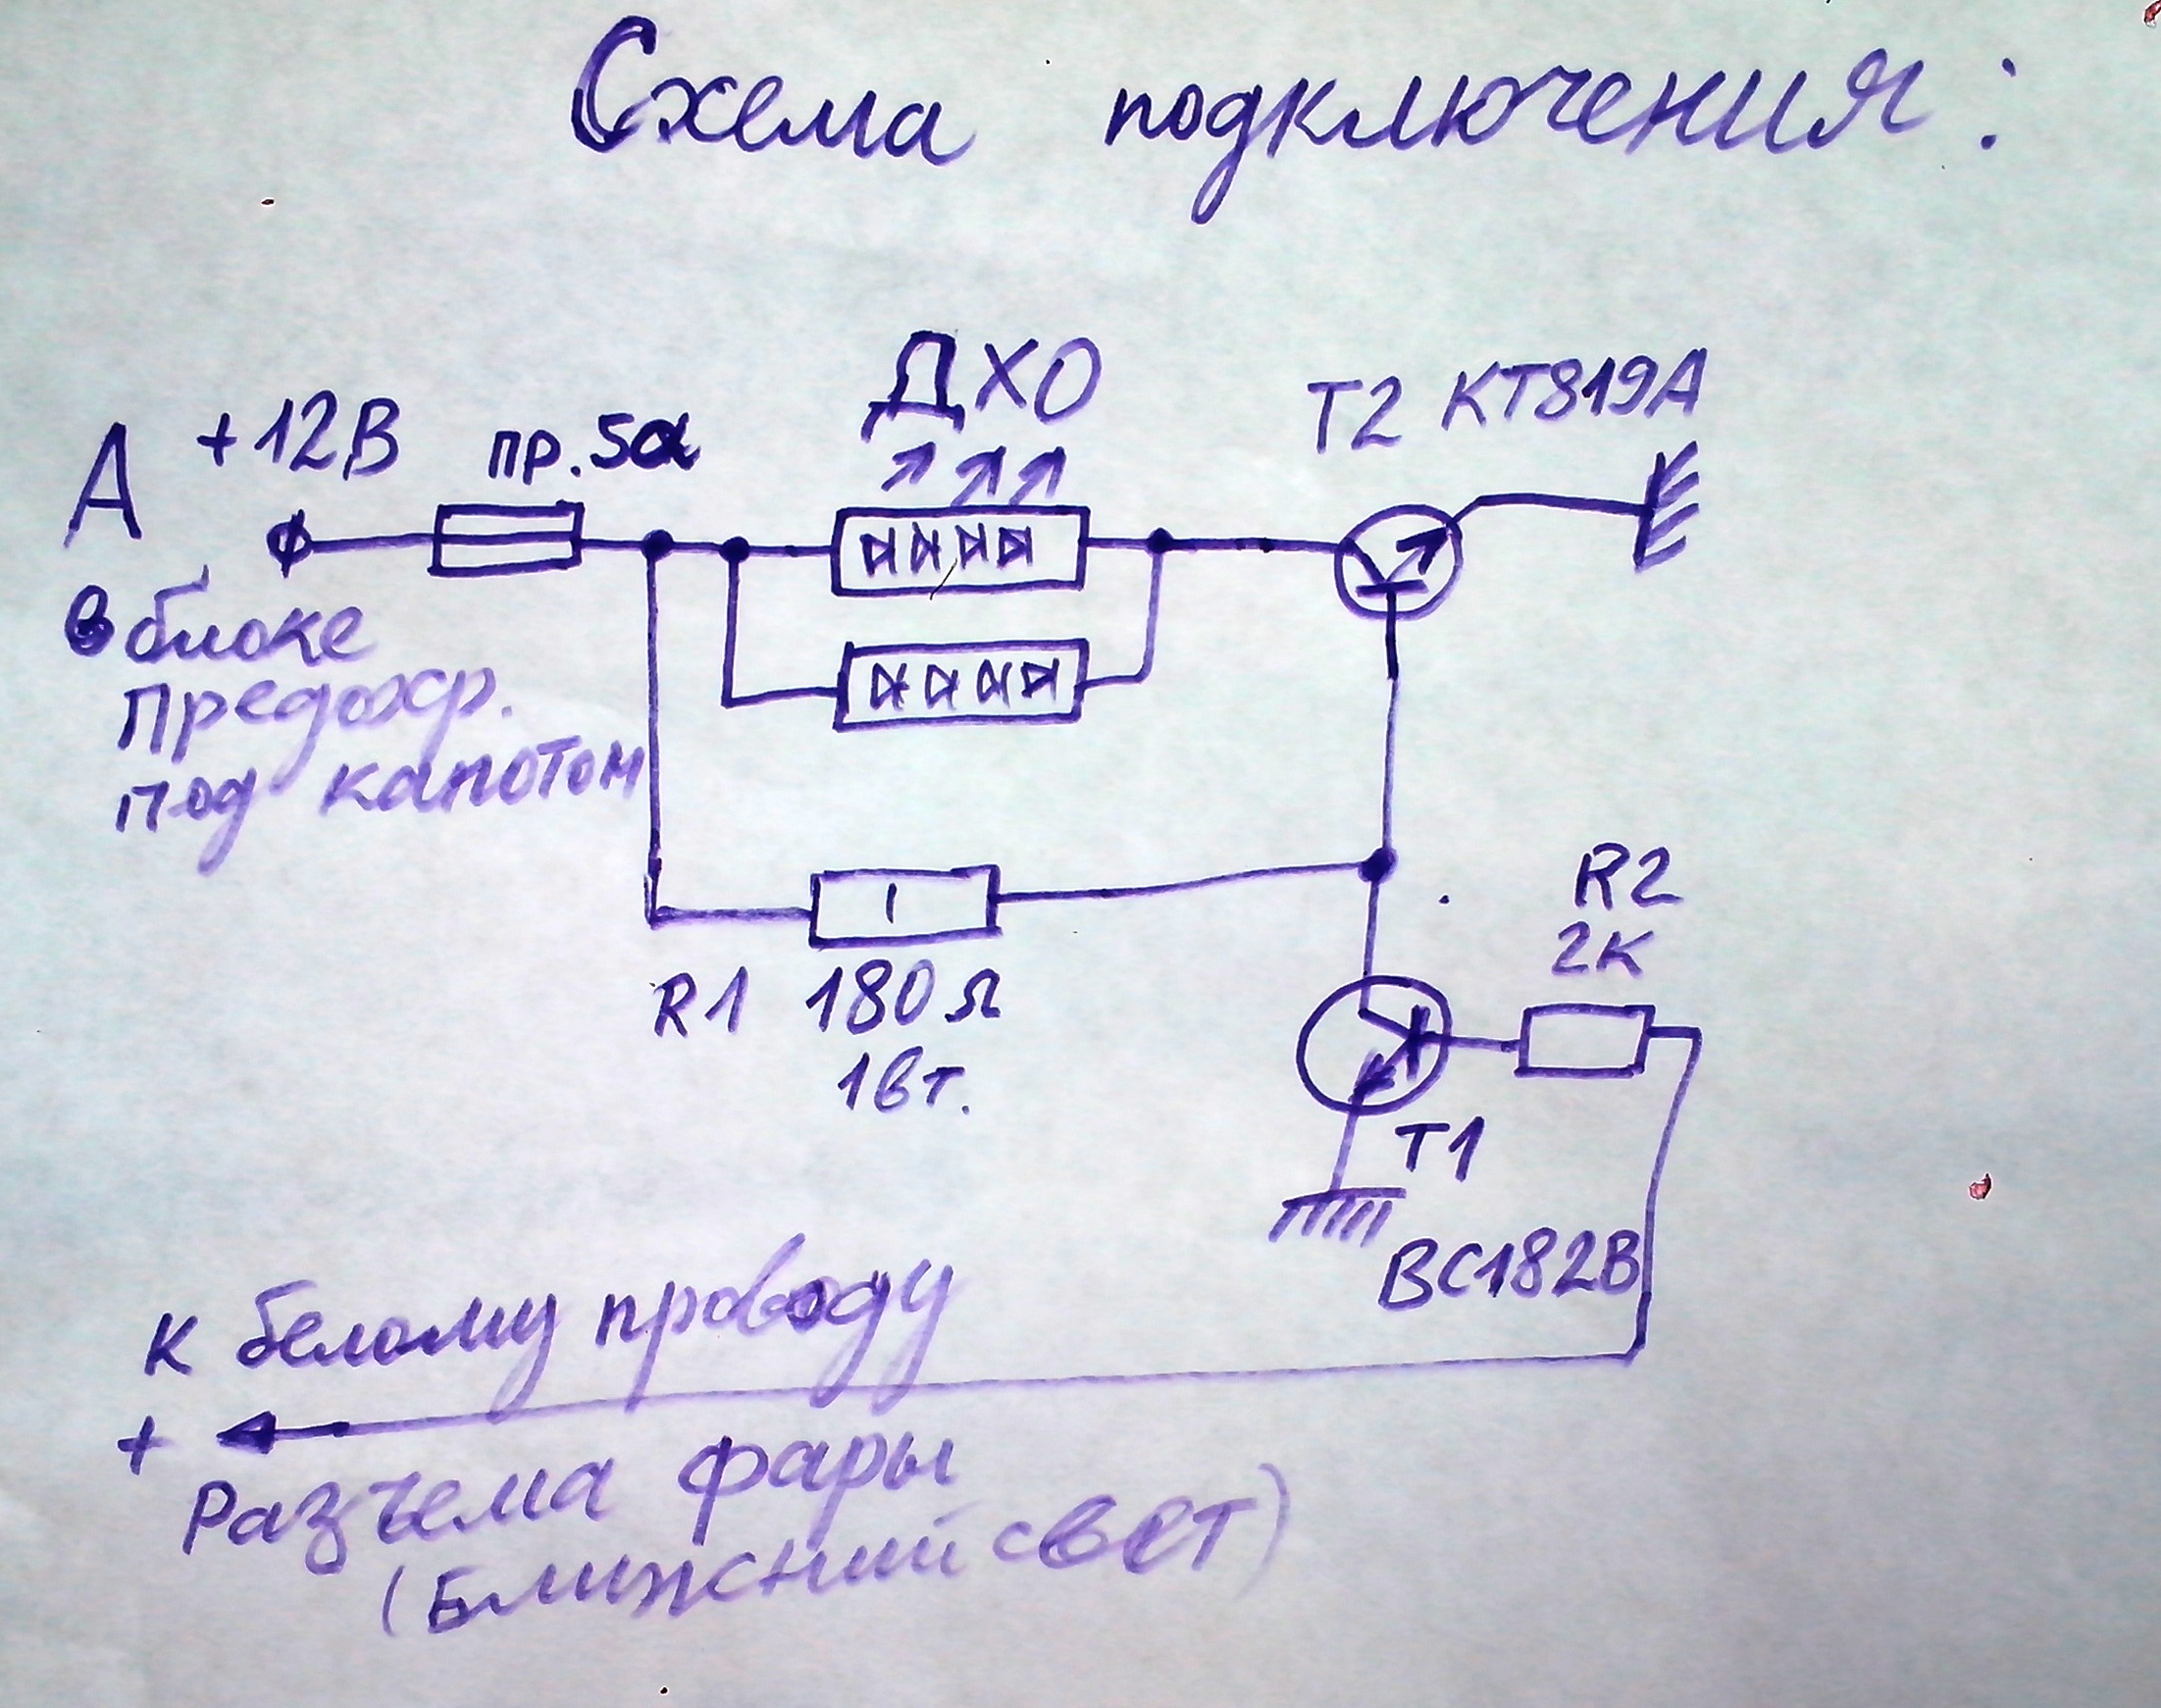 Схема подключения:
ДХО
Т2 КТ819А
А +12В пр. 5а
в блоке
предохр.
под капотом
R1 180 Ω
1вт.
R2
2К
Т1
ВС182В
к белому проводу
+
Разъема фары
(Ближний свет)